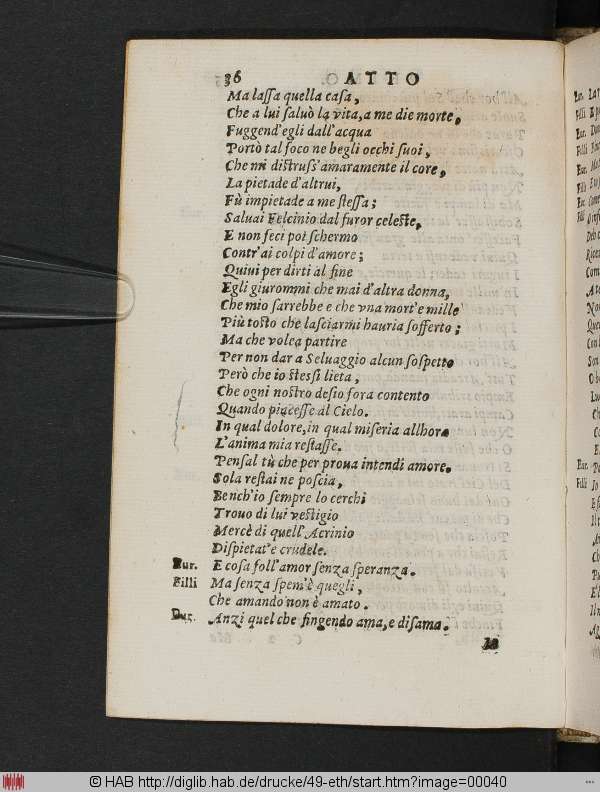 36 ATTO
Ma lassa quella casa,
Che a lui saluò la vita, a me die morte,
Fuggend'egli dall'acqua
Portò tal foco ne begli occhi suoi,
Che mi distruss'amaramente il core,
La pietade d'altrui,
Fù impietade a me stessa;
Saluai Felcinio dal furor celeste,
E non feci poi schermo
Contr'ai colpi d'amore;
Quiui per dirti al fine
Egli giurommi che mai d'altra donna,
Che mio sarrebbe e che vna mort'e mille
Più tosto che lasciarmi hauria sofferto;
Ma che volea partire
Per non dar a Seluaggio alcun sospetto
Però che io stessi lieta,
Che ogni nostro desio fora contento
Quando piacesse al Cielo.
In qual dolore, in qual miseria allhora
L'anima mia restasse.
Pensal tù che per proua intendi amore.
Sola restai ne poscia,
Bench'io sempre lo cerchi
Trouo di lui vestigio
Mercè di quell'Acrinio
Dispietat'e crudele.
Eur. E cosa foll'amor senza speranza.
Filli Ma senza spem'è quegli,
Che amando non è amato.
Eur. Anzi quel che fingendo ama, e disama.
© HAB http://diglib.hab.de/drucke/49-eth/start.htm?image=00040